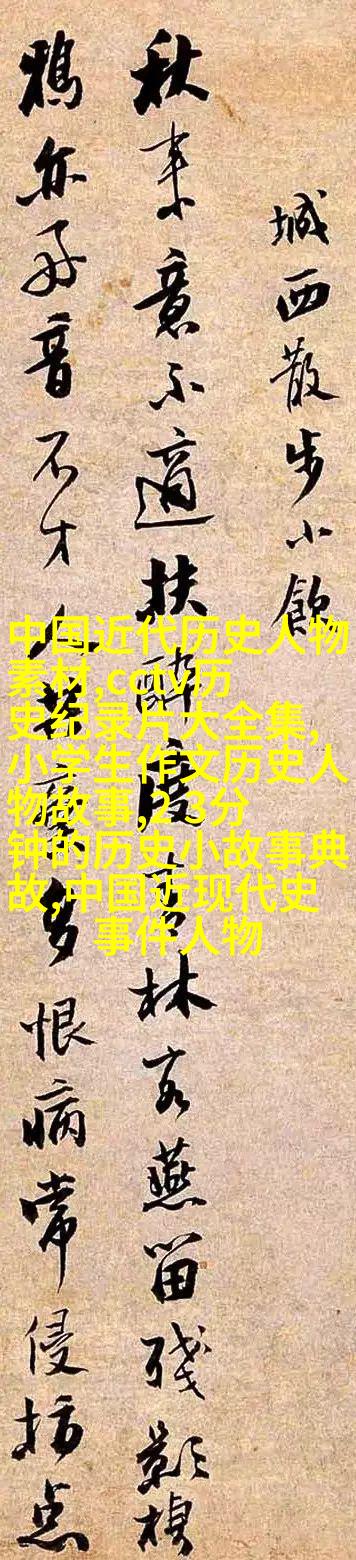 城西散步小飲
秋来意不適扶醉度林客燕留殘影
鴉亦好音不才多恨病常侵点
中国近代历史人物
素材,cctv历
史纪录片大全集,
小学生作文历史人
物故事,2.3分
钟的历史小故事典
故,中国近现代史
事件人物